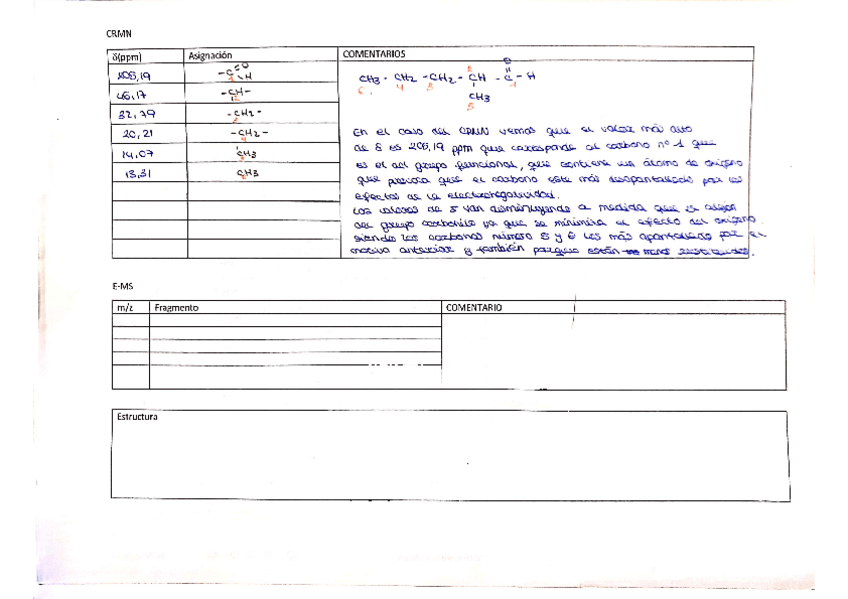 CRMN
δ(ppm) Asignación COMENTARIOS
205,19 -C=O H 1
CH3 - CH2 - CH2 - CH - C - H
O
6 4 3 2 1
CH3
5
46,17 -CH- 2
32,79 -CH2- 3
20,21 -CH2- 4
14,07 CH3
13,31 CH3
En el caso del CRMN vemos que el valor más alto
de δ es 205,19 ppm que corresponde al carbono nº 1 que
es el del grupo funcional, que contiene un átomo de oxígeno
que provoca que el carbono este más desapantallado por los
efectos de la electronegatividad.
Los valores de δ van disminuyendo a medida que se alejan
del grupo carbonilo ya que se minimiza el efecto del oxígeno
siendo los carbonos número 5 y 6 los más apantallados por el
motivo anterior y también porque están menos sustituidos.
E-MS
m/z Fragmento COMENTARIO
Estructura